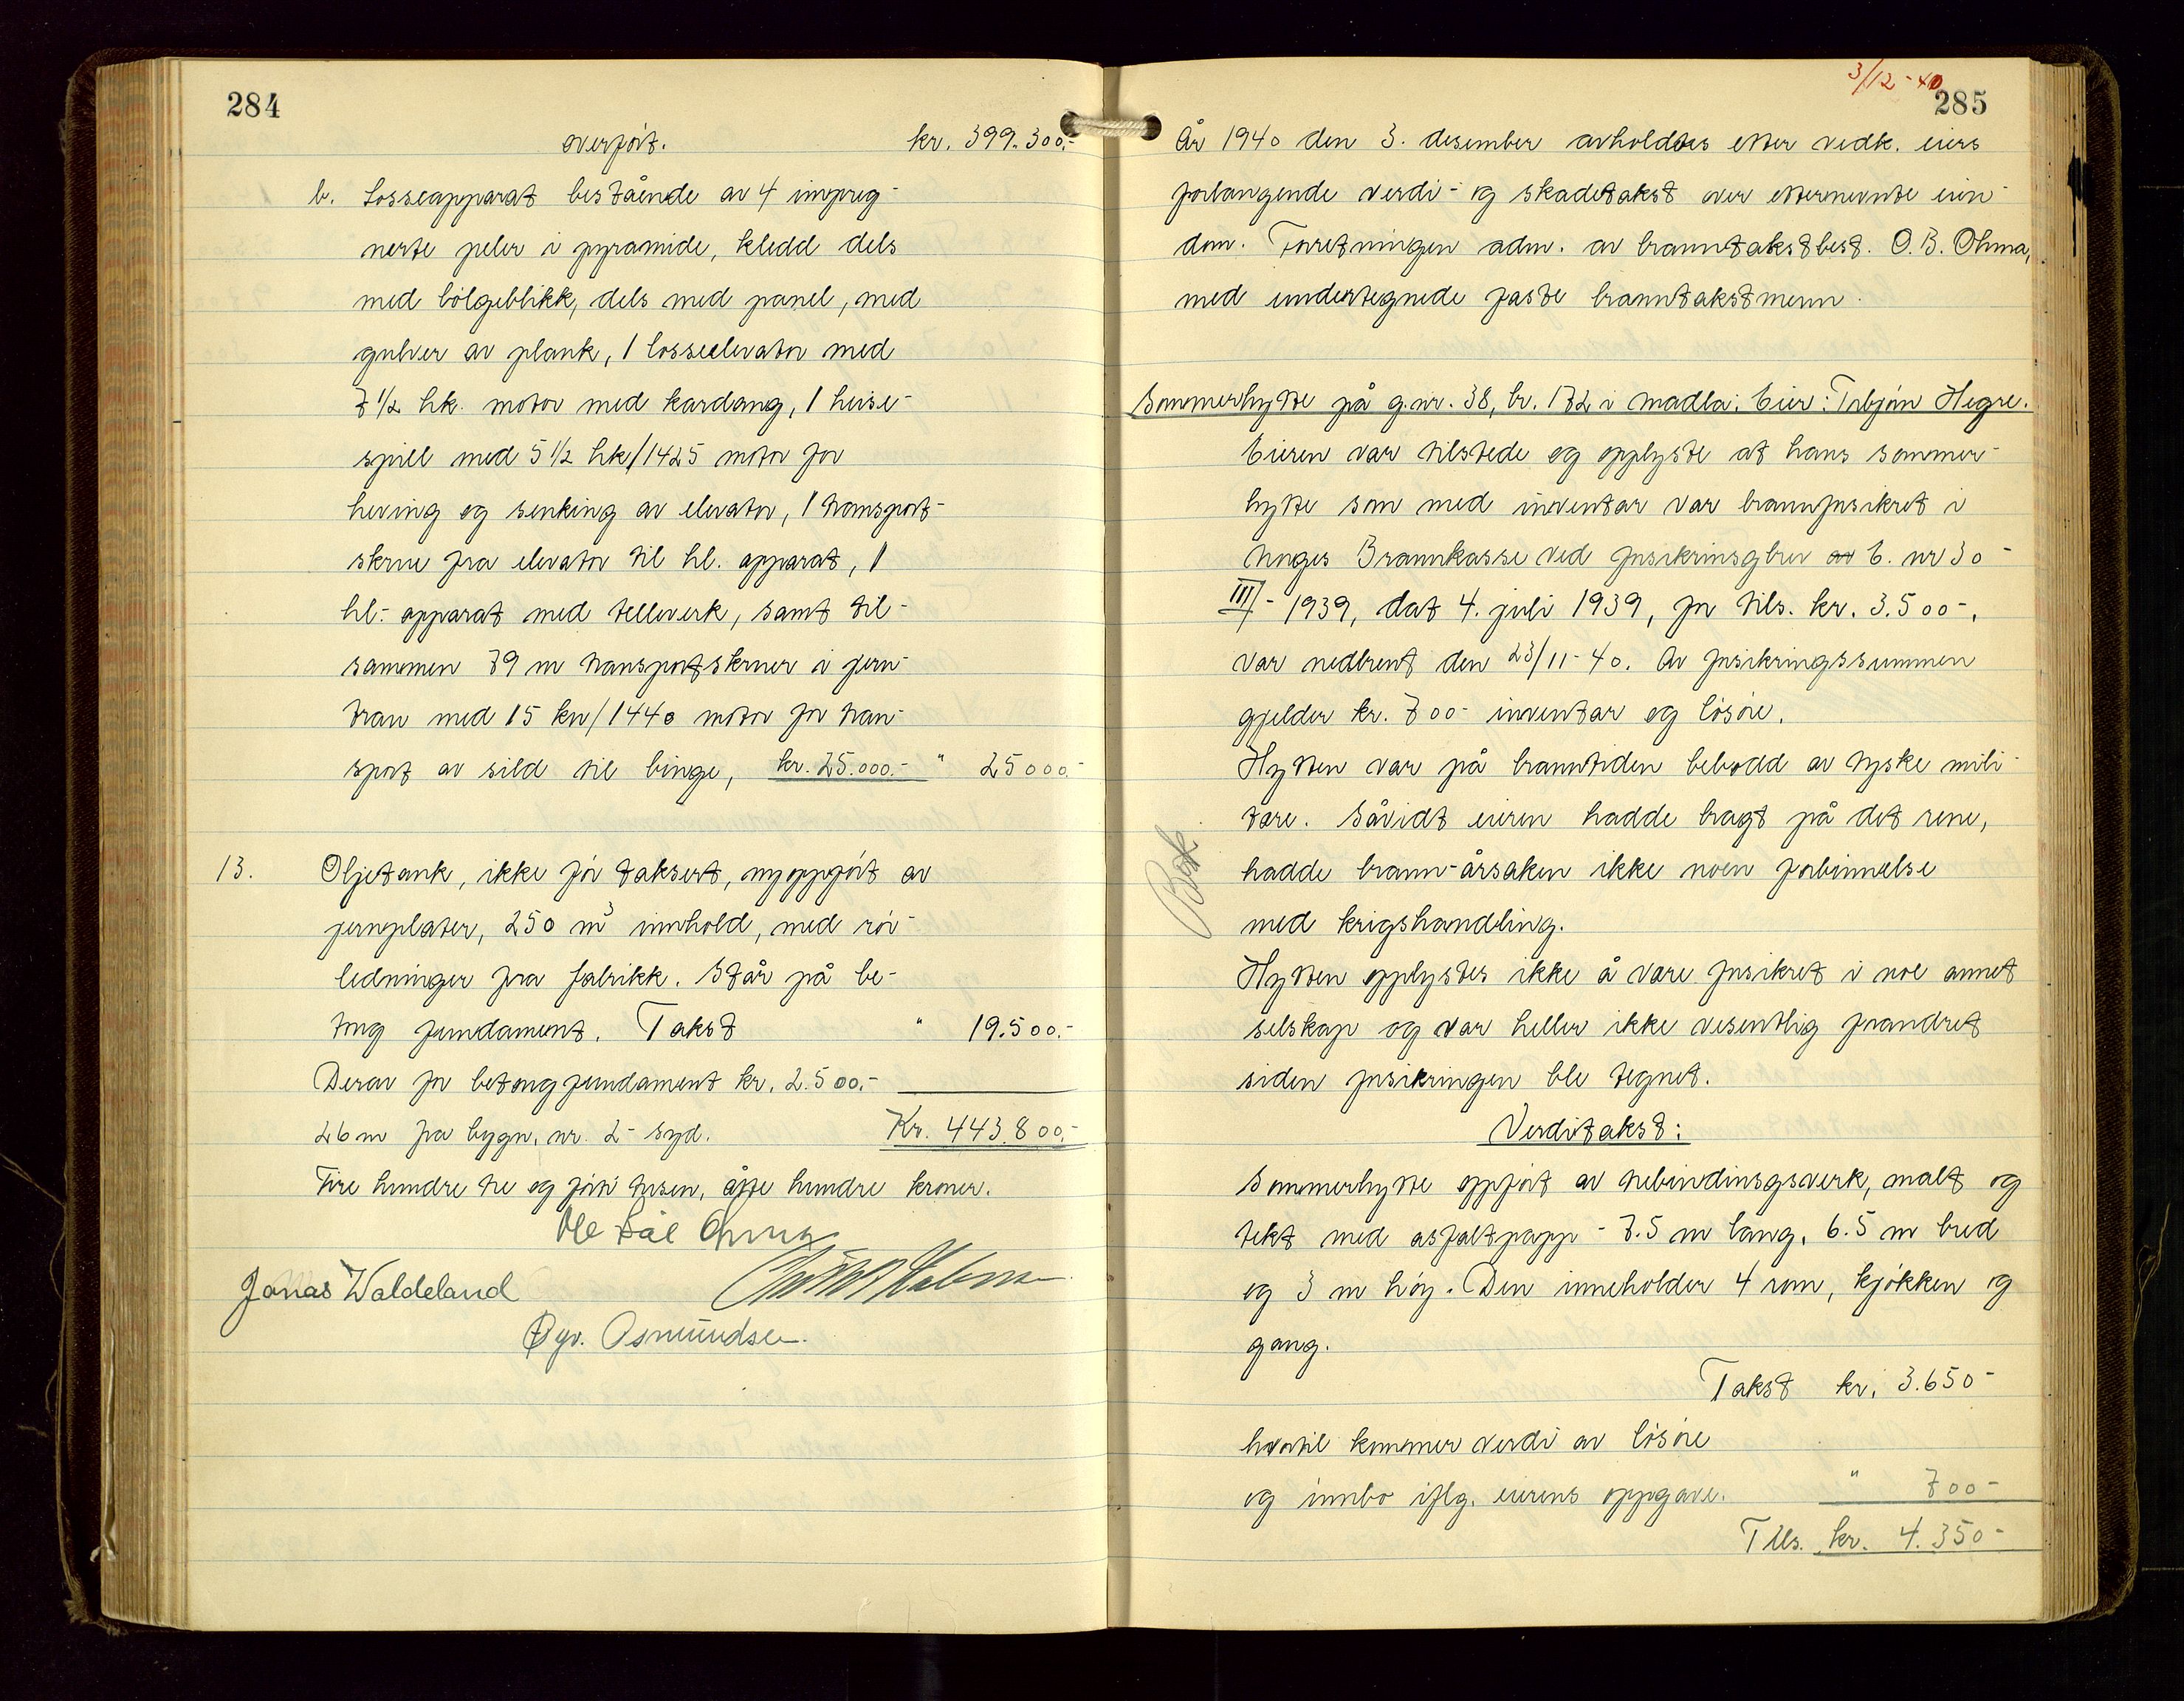 284
overført. kr. 399.300.-
b. Losseapparat bestående av 4 impreg-
nerte peler i pyramide, kledd dels
med bølgeblikk, dels med panel, med
gulver av plank, 1 losseelevator med
7 1/2 hk. motor med kardang, 1 heise-
spill med 5 1/2 hk/1425 motor for
heving og senking av elevator, 1 transport-
skrue fra elevator til hl. apparat, 1
hl- apparat med telleverk, samt til-
sammen 79 m transportskruer i jern-
trau med 15 kw/1440 motor for tran-
sport av sild til binge, kr. 25.000.- " 25000.-
13. Oljetank, ikke før taksert, nyoppført av
jernplater, 250 m³ innhold, med rør-
ledninger fra fabrikk. Står på be-
tong fundament. Takst " 19.500.-
Derav for betongfundament kr. 2.500.-
26 m fra bygn. nr. 2- syd. Kr. 443.800.-
Fire hundre tre og førti tusen, åtte hundre kroner.
Jonas Waldeland
Osmundsen.
3/12-40
285
År 1940 den 3. desember avholdtes etter vedk. eiers
forlangende verdi- og skadetakst over etternevnte eien-
dom. Forretningen adm. av branntakstbest. O.B. Ohma,
med undertegnede faste branntakstmenn.
Sommerhytte på g.nr. 38, br. 172 i Madla. Eier: Torbjørn Hegre.
Eieren var tilstede og opplyste at hans sommer-
hytte som med inventar var brannforsikret i
Norges Brannkasse ved forsikringsbrev av B. nr 30-
III- 1939, dat 4. juli 1939, for tils. kr. 3.500-,
var nedbrent den 23/11-40. Av forsikringssummen
gjelder kr. 700- inventar og løsøre.
Hytten var på branntiden bebodd av tyske mili-
tære. Såvidt eieren hadde bragt på det rene,
hadde brann-årsaken ikke noen forbinnelse
med krigshandling.
Hytten opplystes ikke å være forsikret i noe annet
selskap og var heller ikke vesentlig forandret
siden forsikringen ble tegnet.
Verditakst:
Sommerhytte oppført av trebindingsverk, malt og
tekt med asfaltpapp - 7.5 m lang, 6.5 m bred
og 3 m høy. Den inneholder 4 rom, kjøkken og
gang.
Takst kr. 3.650-
hvortil kommer verdi av løsøre
og innbo iflg. eierens oppgave. " 700-
Tils. kr. 4.350-